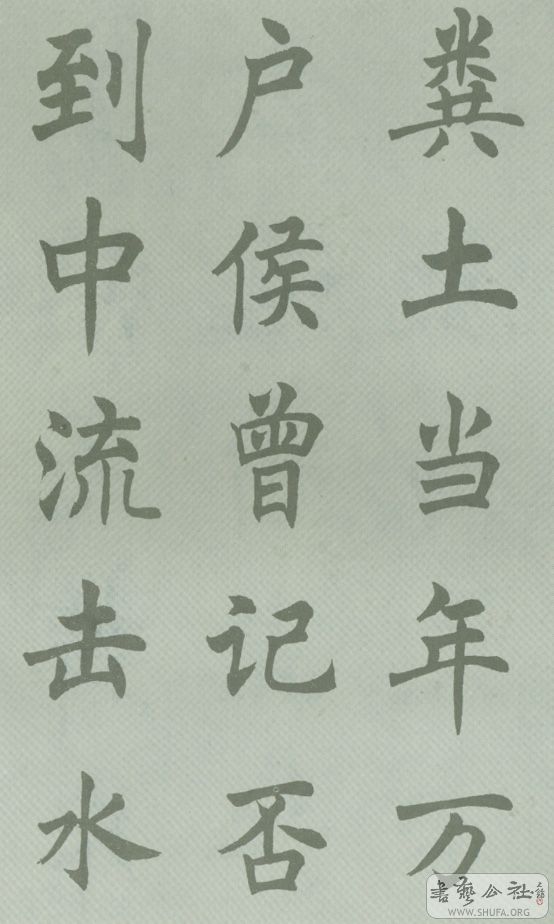 粪土当年万
户侯曾记否
到中流击水
书艺公社
WWW.SHUFA.ORG